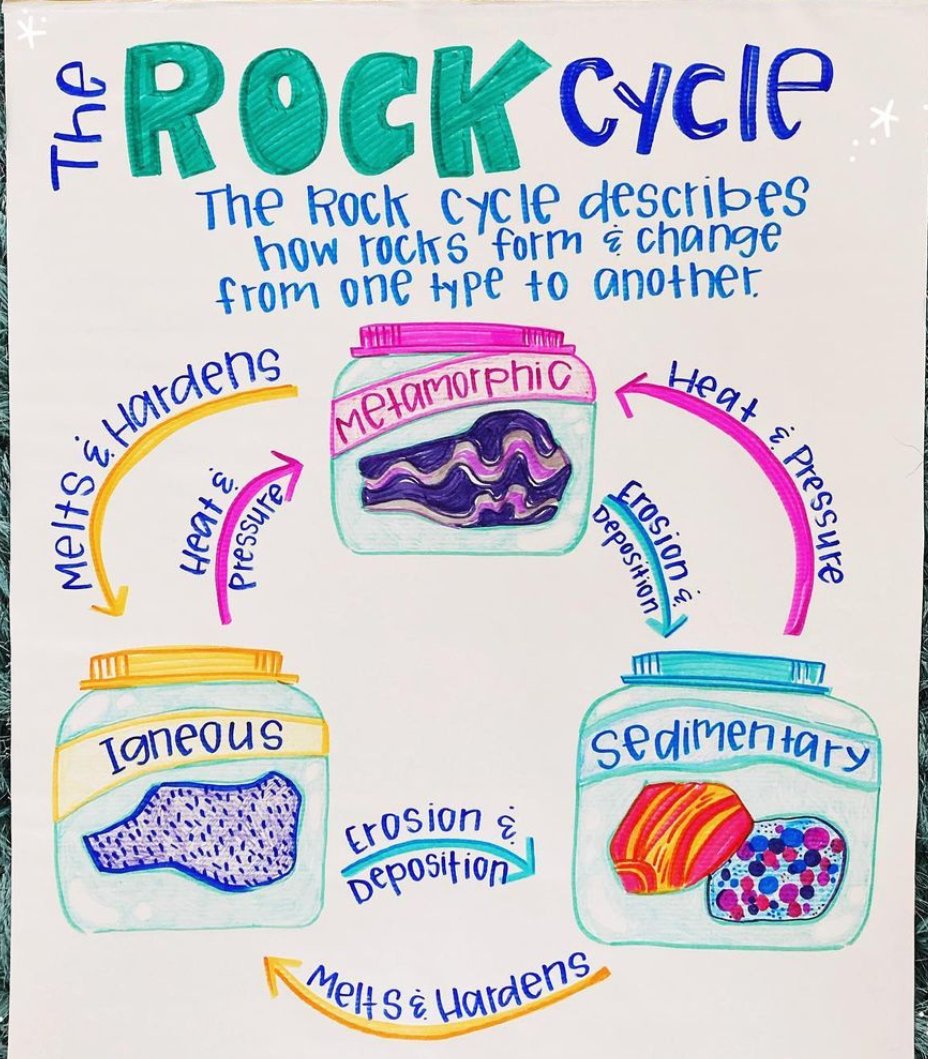 The ROCK Cycle
The Rock Cycle describes
how rocks form & change
from one type to another.
Melts & Hardens
Heat &
Pressure
Metamorphic
Heat & Pressure
Erosion &
Deposition
Igneous
Sedimentary
Erosion &
Deposition
Melts & Hardens